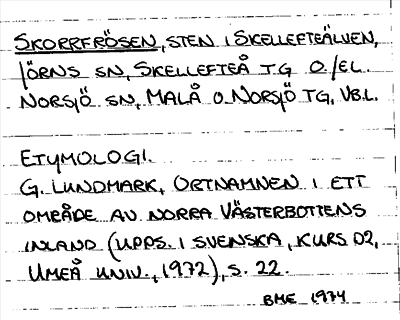 SKORRFRÖSEN, STEN I SKELLEFTEÄLVEN,
JÖRNS SN, SKELLEFTEÅ TG O/EL.
NORSJÖ SN, MALÅ O NORSJÖ TG, VB.L.
ETYMOLOGI.
G. LUNDMARK, ORTNAMNEN I ETT
OMRÅDE AV NORRA VÄSTERBOTTENS
INLAND (UPPS. I SVENSKA, KURS D2,
UMEÅ UNIV., 1972), S. 22.
BME 1974